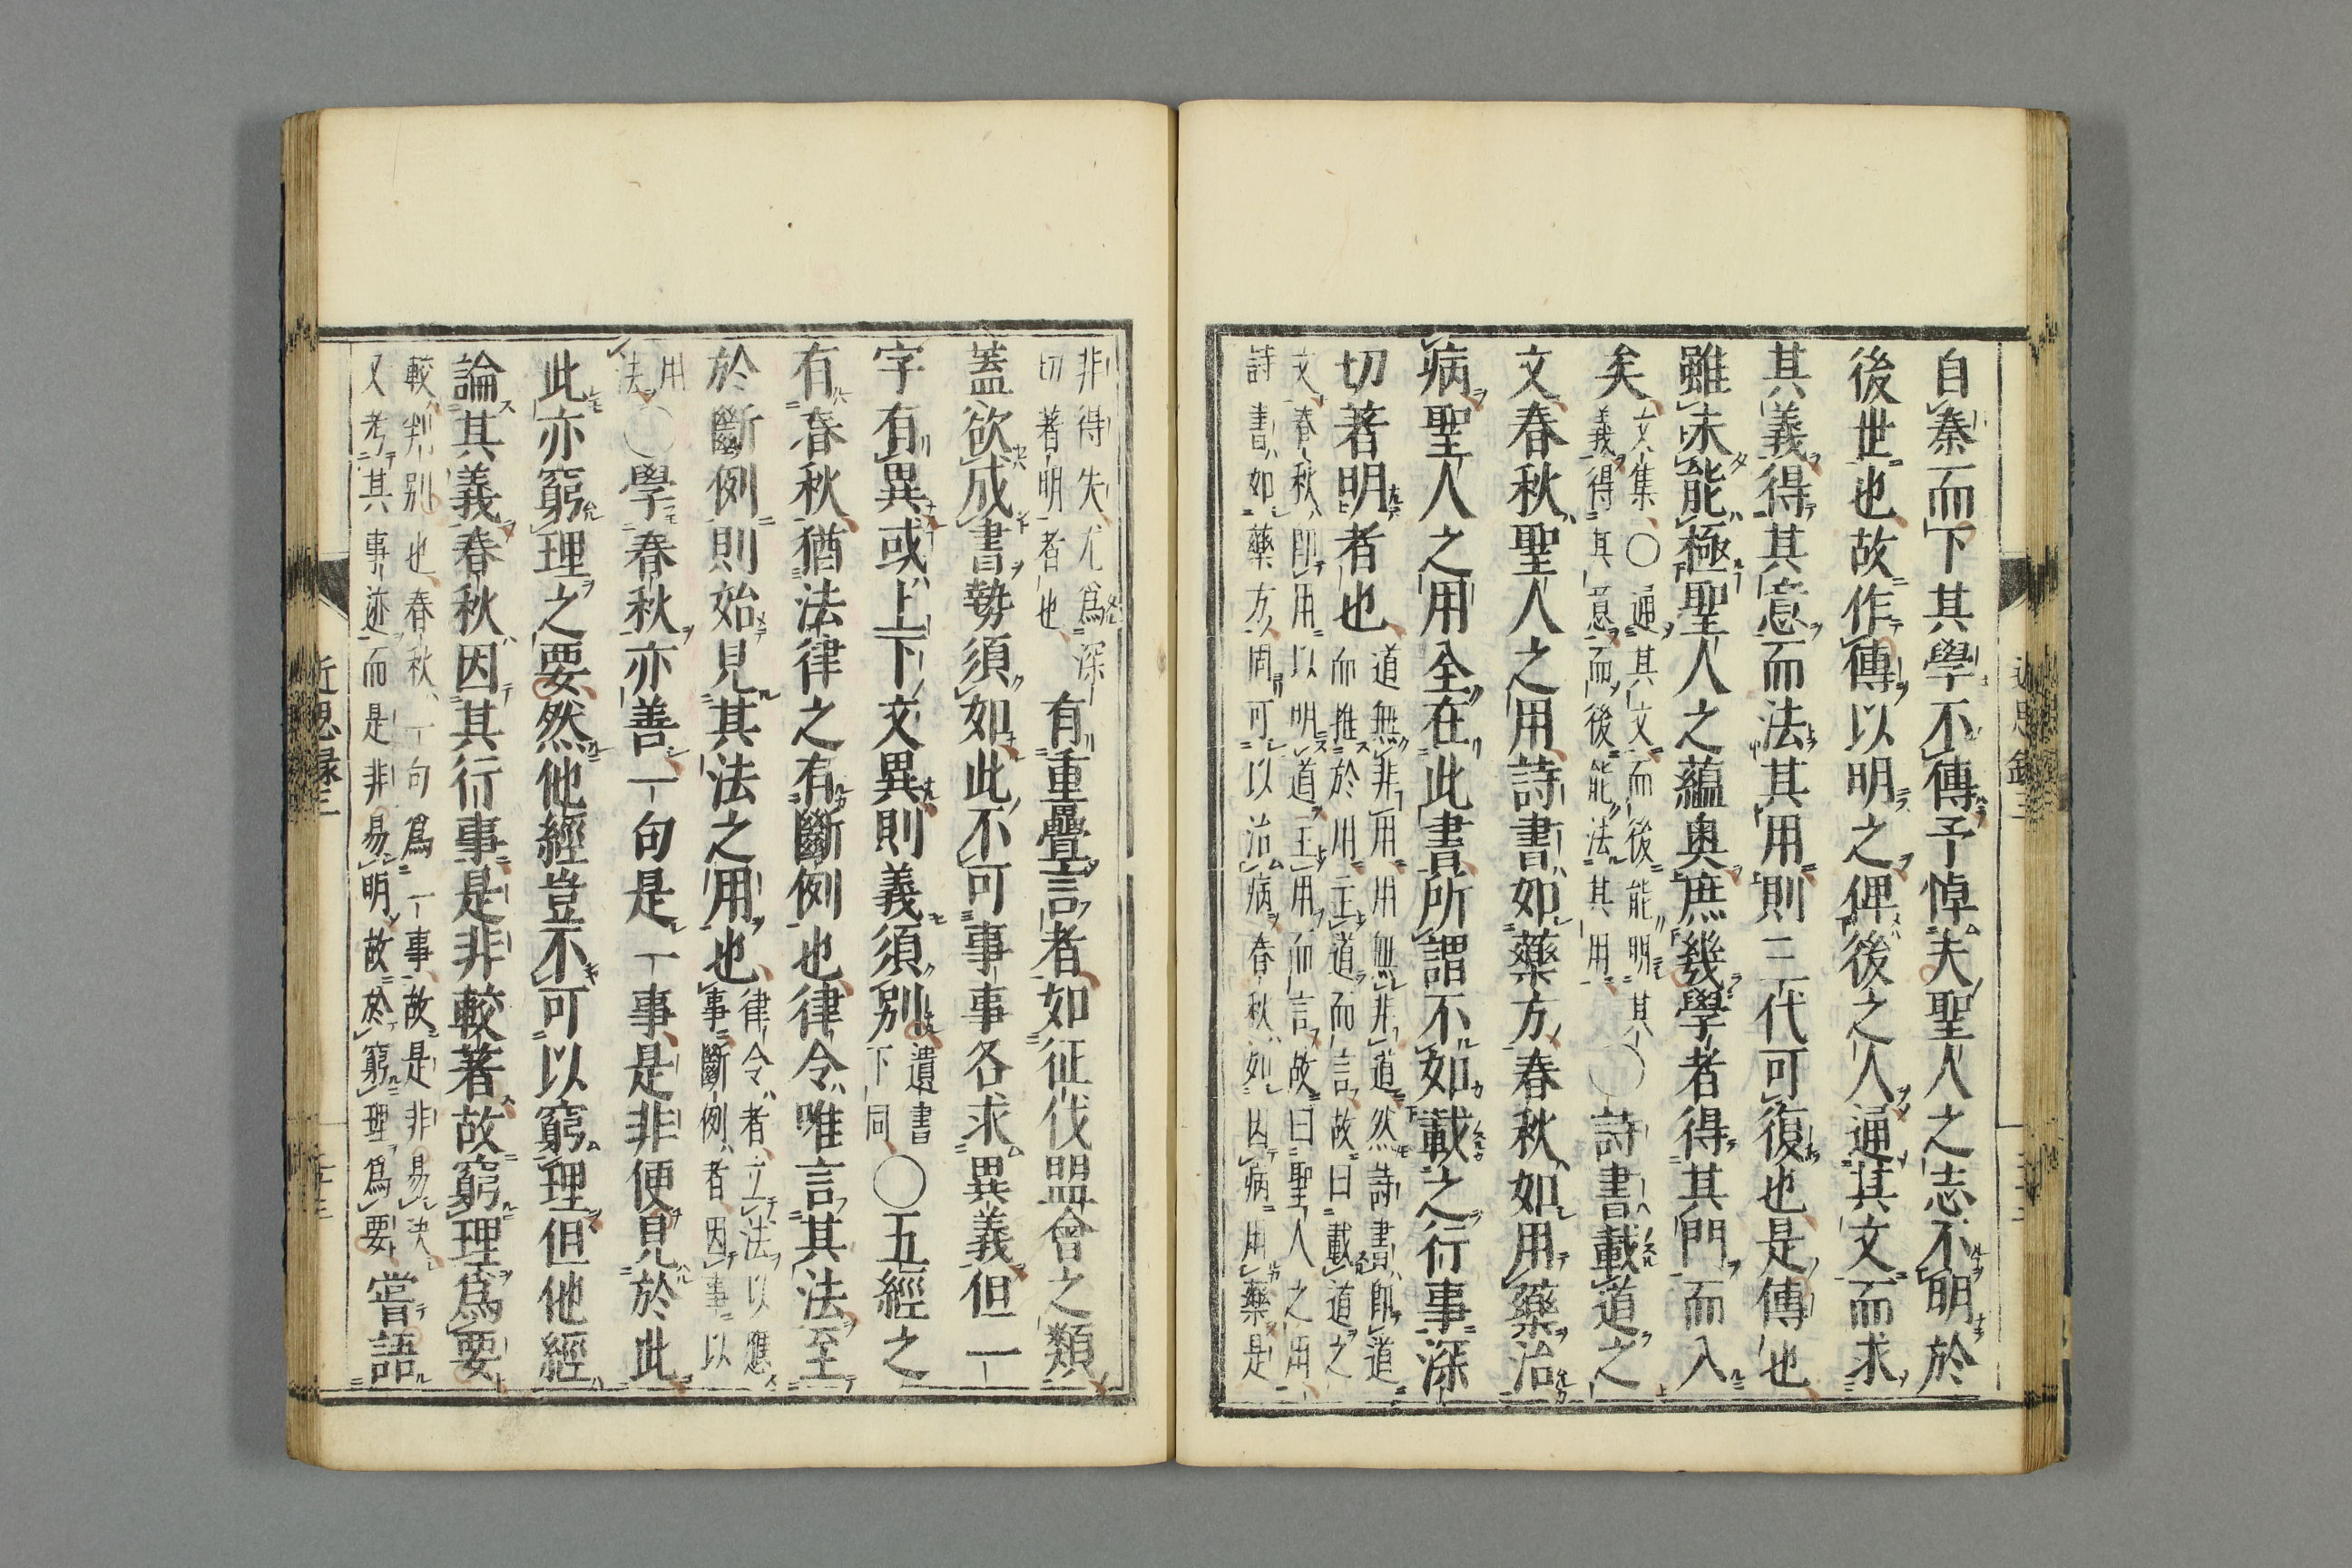 自秦而下其學不傳予悼夫聖人之志不明於
後世也故作傳以明之俾後之人通其文而求
其義得其意而法其用則三代可復也是傳也
雖未能極聖人之蘊奥庶幾學者得其門而入
矣
文集〇通其文而後能明其
義得其意而後能法其用
〇詩書載道之
文春秋聖人之用詩書如藥方春秋如用藥治
病聖人之用全在此書所謂不如載之行事深
切著明者也
道無非用用無非道然詩書卽道
而推於用主道而言故曰載道之
文春秋卽用以明道主用而言故曰聖人之用
詩書如藥方固可以治病春秋如因病用藥是
非得失尤爲深
切著明者也
有重疊言者如征伐盟會之類
蓋欲成書勢須如此不可事事各求異義但一
字有異或上下文異則義須別
遺書
下同
〇五經之
有春秋猶法律之有斷例也律令唯言其法至
於斷例則始見其法之用也
律令者立法以應
事斷例者因事以
用
法
〇學春秋亦善一句是一事是非便見於此
此亦窮理之要然他經豈不可以窮理但他經
論其義春秋因其行事是非較著故窮理爲要
較判別也春秋一句爲一事故是非易決
又考其事迹而是非易明故於窮理爲要
嘗語
近思録三